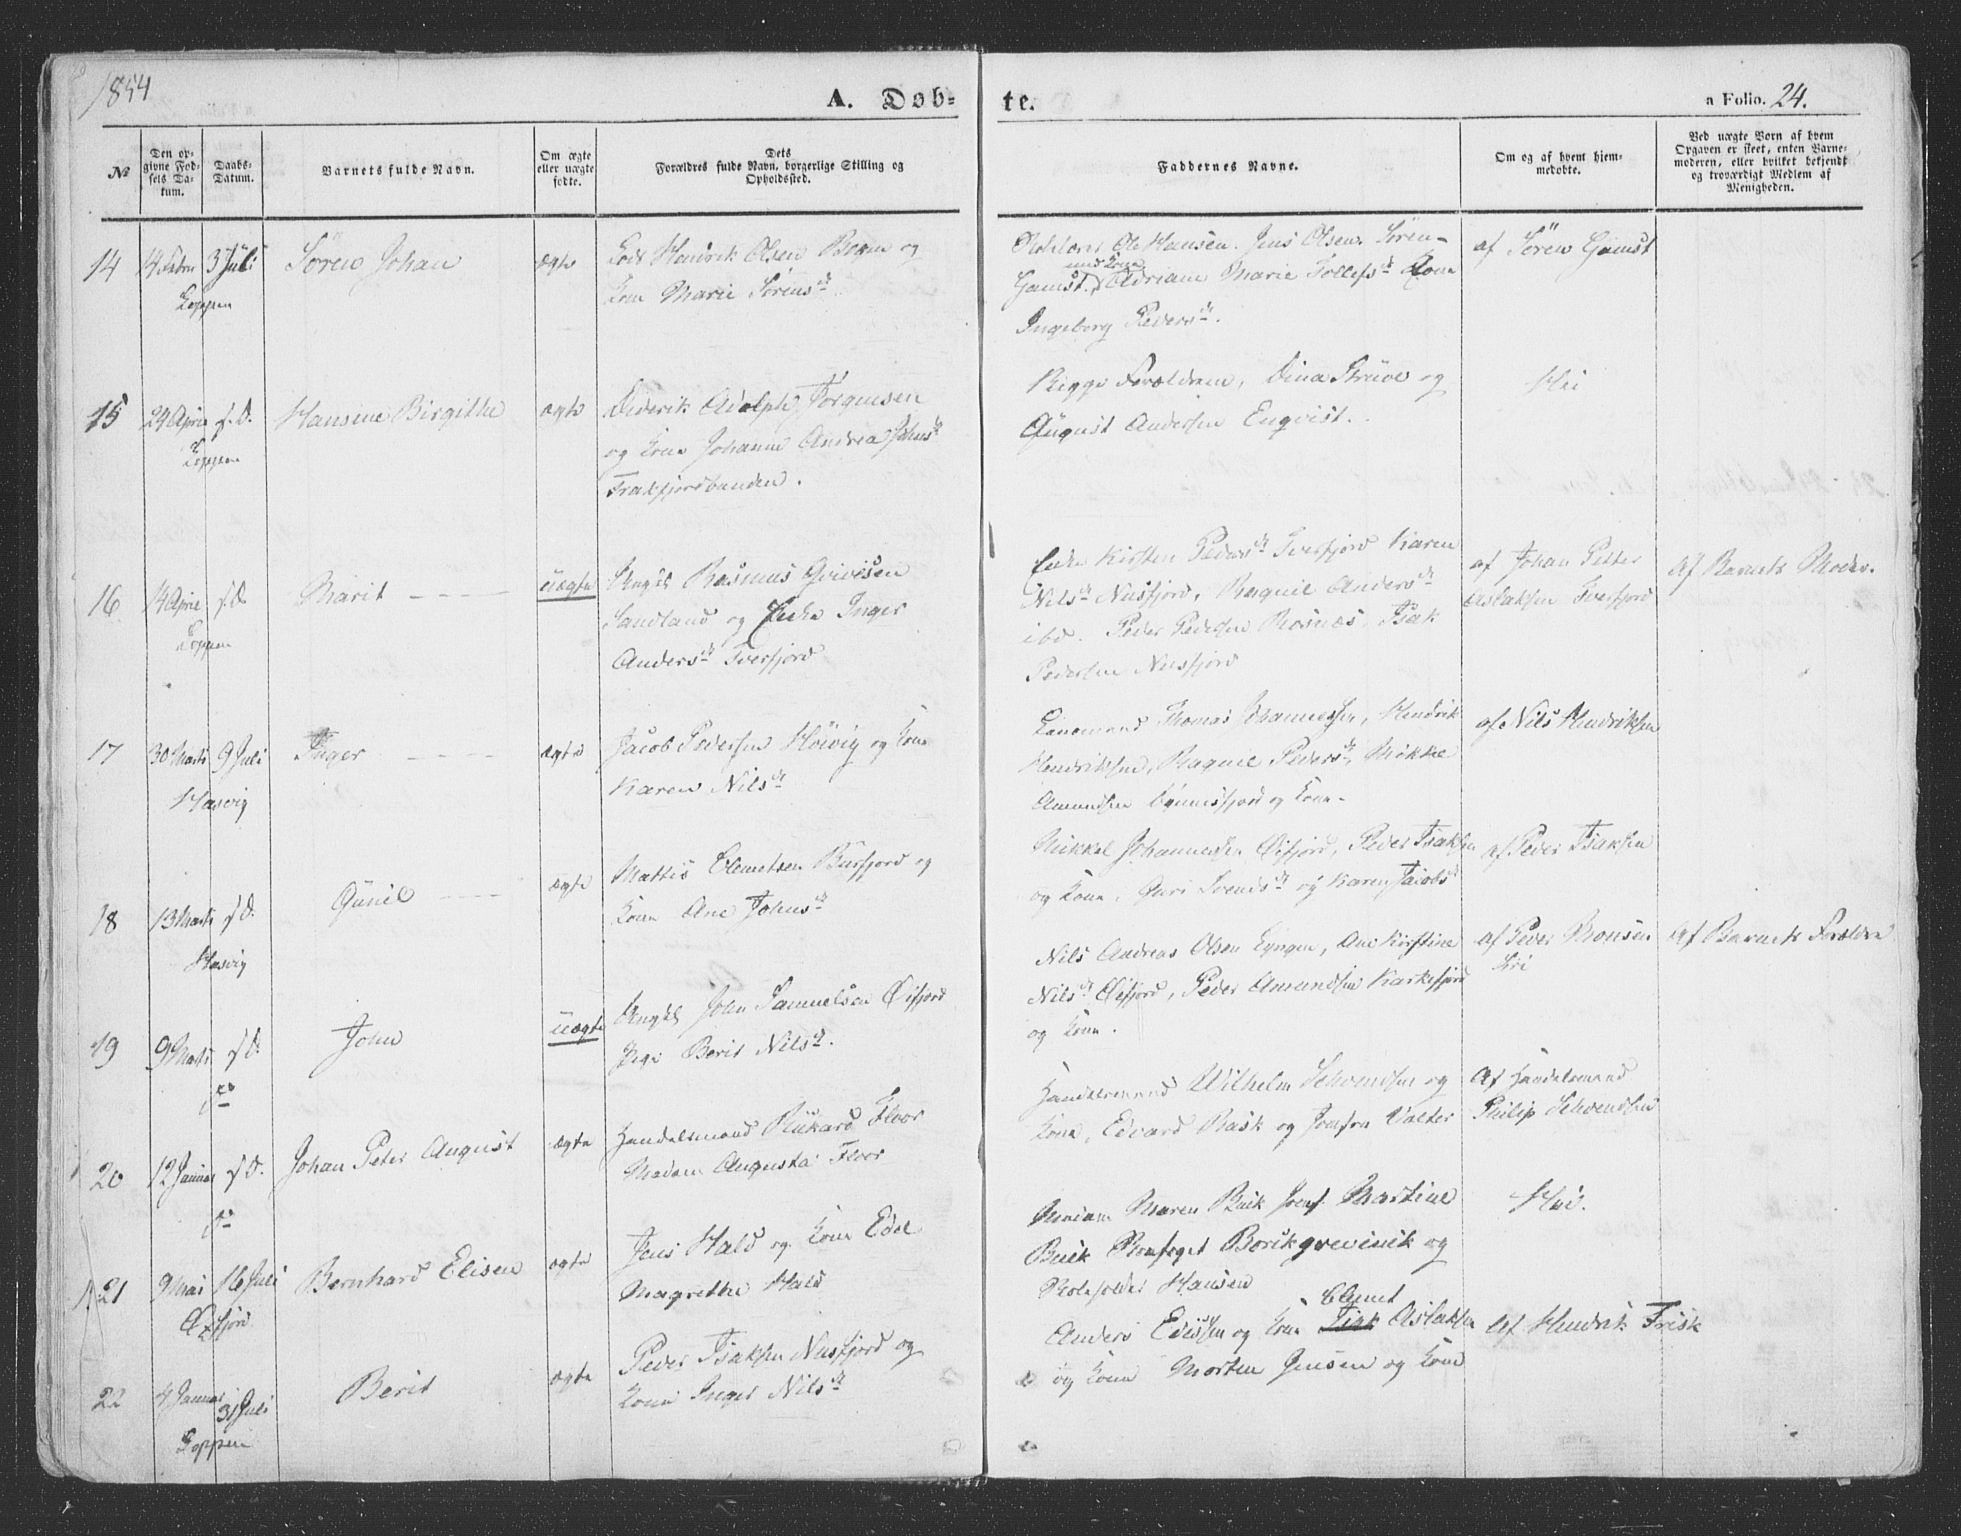 1854
A. Døb-
te.
a Folio. 24.
№
Den op-
givne Fød-
sels Da-
tum.
Daabs-
Datum.
Barnets fulde Navn.
Om ægte
eller uægte
fødte.
Dets
Forældres fulde Navn, borgerlige Stilling og
Opholdssted.
Faddernes Navne.
Om og af hvem hjem-
medøbte.
Ved uægte Børn af hvem
Opgaven er skeet, enten Barne-
moderen, eller hvilket bekjendt
og troværdigt Medlem af
Menigheden.
14 14 Febr 3 Juli Sören Johan ægte Hendrik Olsen og
Loppen
Kone Marie Sörensd
Ole Hansen. Jens Olsen. Sören
Gamst. med Kone Adriane Marie Tollefsd Kone
Ingeborg Pedersd.
af Sören Gamst
15 24 April s. D. Hansine Birgithe ægte Diderik Adolph Jörgensen
Loppen
og Kone Johanne Andrea Johnsd
Frakfjordbunden.
Begge Forældrene, Dina Struve og
August Andersen Enqvist.
Nei
16 14 April s. D. Marit uægte Ungk Rasmus
Loppen
Sandland og Enke Inger
Andersd Tverfjord
Enke Kirsten Pedersd Tverfjord Karen
Nilsd Nusfjord, Ragnil Andersd
ibd. Peder Pedersen Rosnæs, Isak
Pedersen Nusfjord
af Johan Petter
Aslaksen Tverfjord
Af Barnets Moder.
17 30 Marts 9 Juli Inger ægte Jacob Pedersen Höivig og Kone
Hasvig
Karen Nilsd
Thomas Johannessen, Hendrik
Hendriksen, Ragnil Pedersd, Mikkel
Amundsen og Kone
af Nils Hendriksen
18 13 Marts s D. Gunil ægte Mattis Clemetsen Burfjord og
Hasvig
Kone Ane Johnsd
Mikkel Johannessen Öxfjord, Peder Isaksen
og Kone, Guri Svendsd og Karen Jacobsd
af Peder Isaksen
19 9 Marts s D. John uægte Ungk John Samuelsen Öxfjord
do
Pige Berit Nilsd.
Nils Andreas Olsen Lyngen, Ane Kirstine
Nilsd Öxfjord, Peder Amundsen Karkefjord
og Kone.
af Peder Monsen
Af Barnets Forældre
20 12 Januar s D. Johan Peter August ægte Handelsmand Rikard Floor
do
Madam Augusta Floor
Handelsmand Wilhelm Schwendsen og
Kone, Edvard Rask og Jomfru Valter
Af Handelsmand
Philip Schwendsen
21 9 Mai 16 Juli Bernhard Elisen ægte Jens Hald og Kone Edel
Öxfjord
Magrethe Hald
Madam Maren Buck Jomf. Martine
Buck Borchgrevinck og
Hansen
Nei.
22 4 Januar 31 Juli Berit ægte Peder Isaksen Nusfjord og
Loppen
Kone Inger Nilsd
Anders og Kone Clemet Aslaksen
og Kone Morten Jensen og Kone
Af Hendrik Frisk